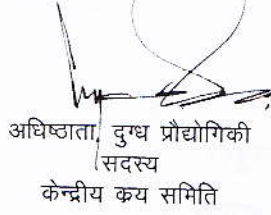 अधिष्ठाता, दुग्ध प्रौद्योगिकी
सदस्य
केन्द्रीय कय समिति